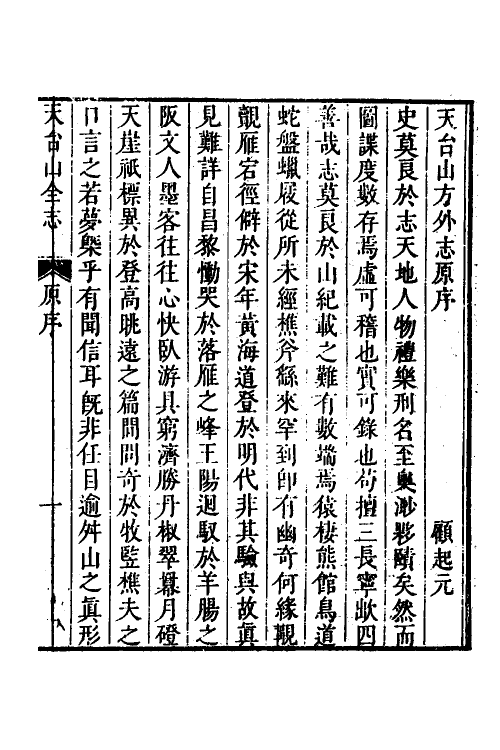 天台山方外志原序
顧起元
史莫良於志天地人物禮樂刑名至奧渺夥賾矣然而
圖諜度數存焉虛可稽也實可錄也苟擅三長寧歉四
善哉志莫良於山紀載之難有數端焉猿棲熊館鳥道
蛇盤蠟屐從所未經樵斧繇來罕到卽有幽奇何緣覯
覿雁宕徑僻於宋年黃海道登於明代非其驗與故眞
見難詳自昌黎慟哭於落雁之峰王陽迴馭於羊腸之
阪文人墨客往往心快臥游具窮濟勝丹椒翠巘月磴
天崖祇標異於登高眺遠之篇間問奇於牧監樵夫之
口言之若夢槩乎有聞信耳旣非任目逾舛山之眞形
天台山全志
原序
一